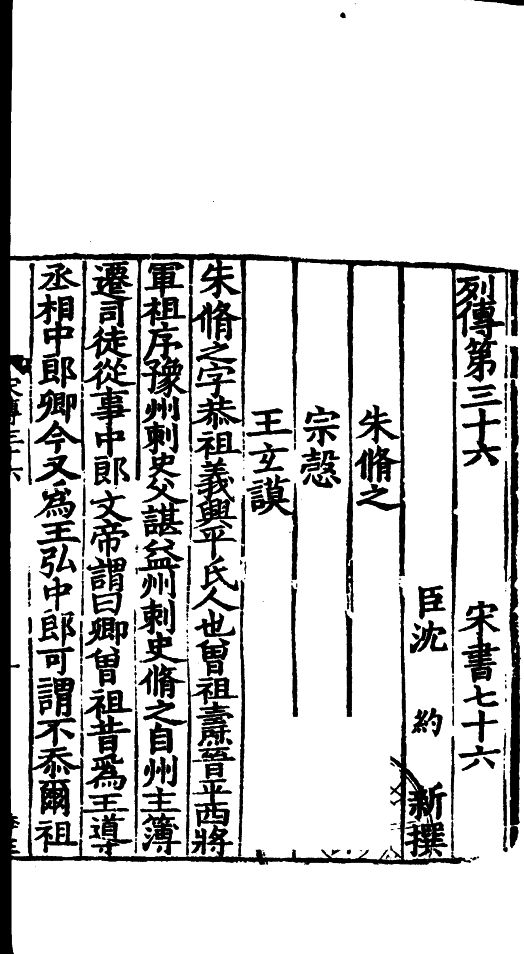 列傳第三十六 宋書七十六
臣沈 約 新撰
朱脩之
宗慤
王玄謨
朱脩之字恭祖義興平氏人也曾祖燾晉平西將
軍祖序豫州刺史父諶益州刺史脩之自州主簿
遷司徒從事中郎文帝謂曰卿曾祖昔爲王導
丞相中郎卿今又爲王弘中郎可謂不忝爾祖